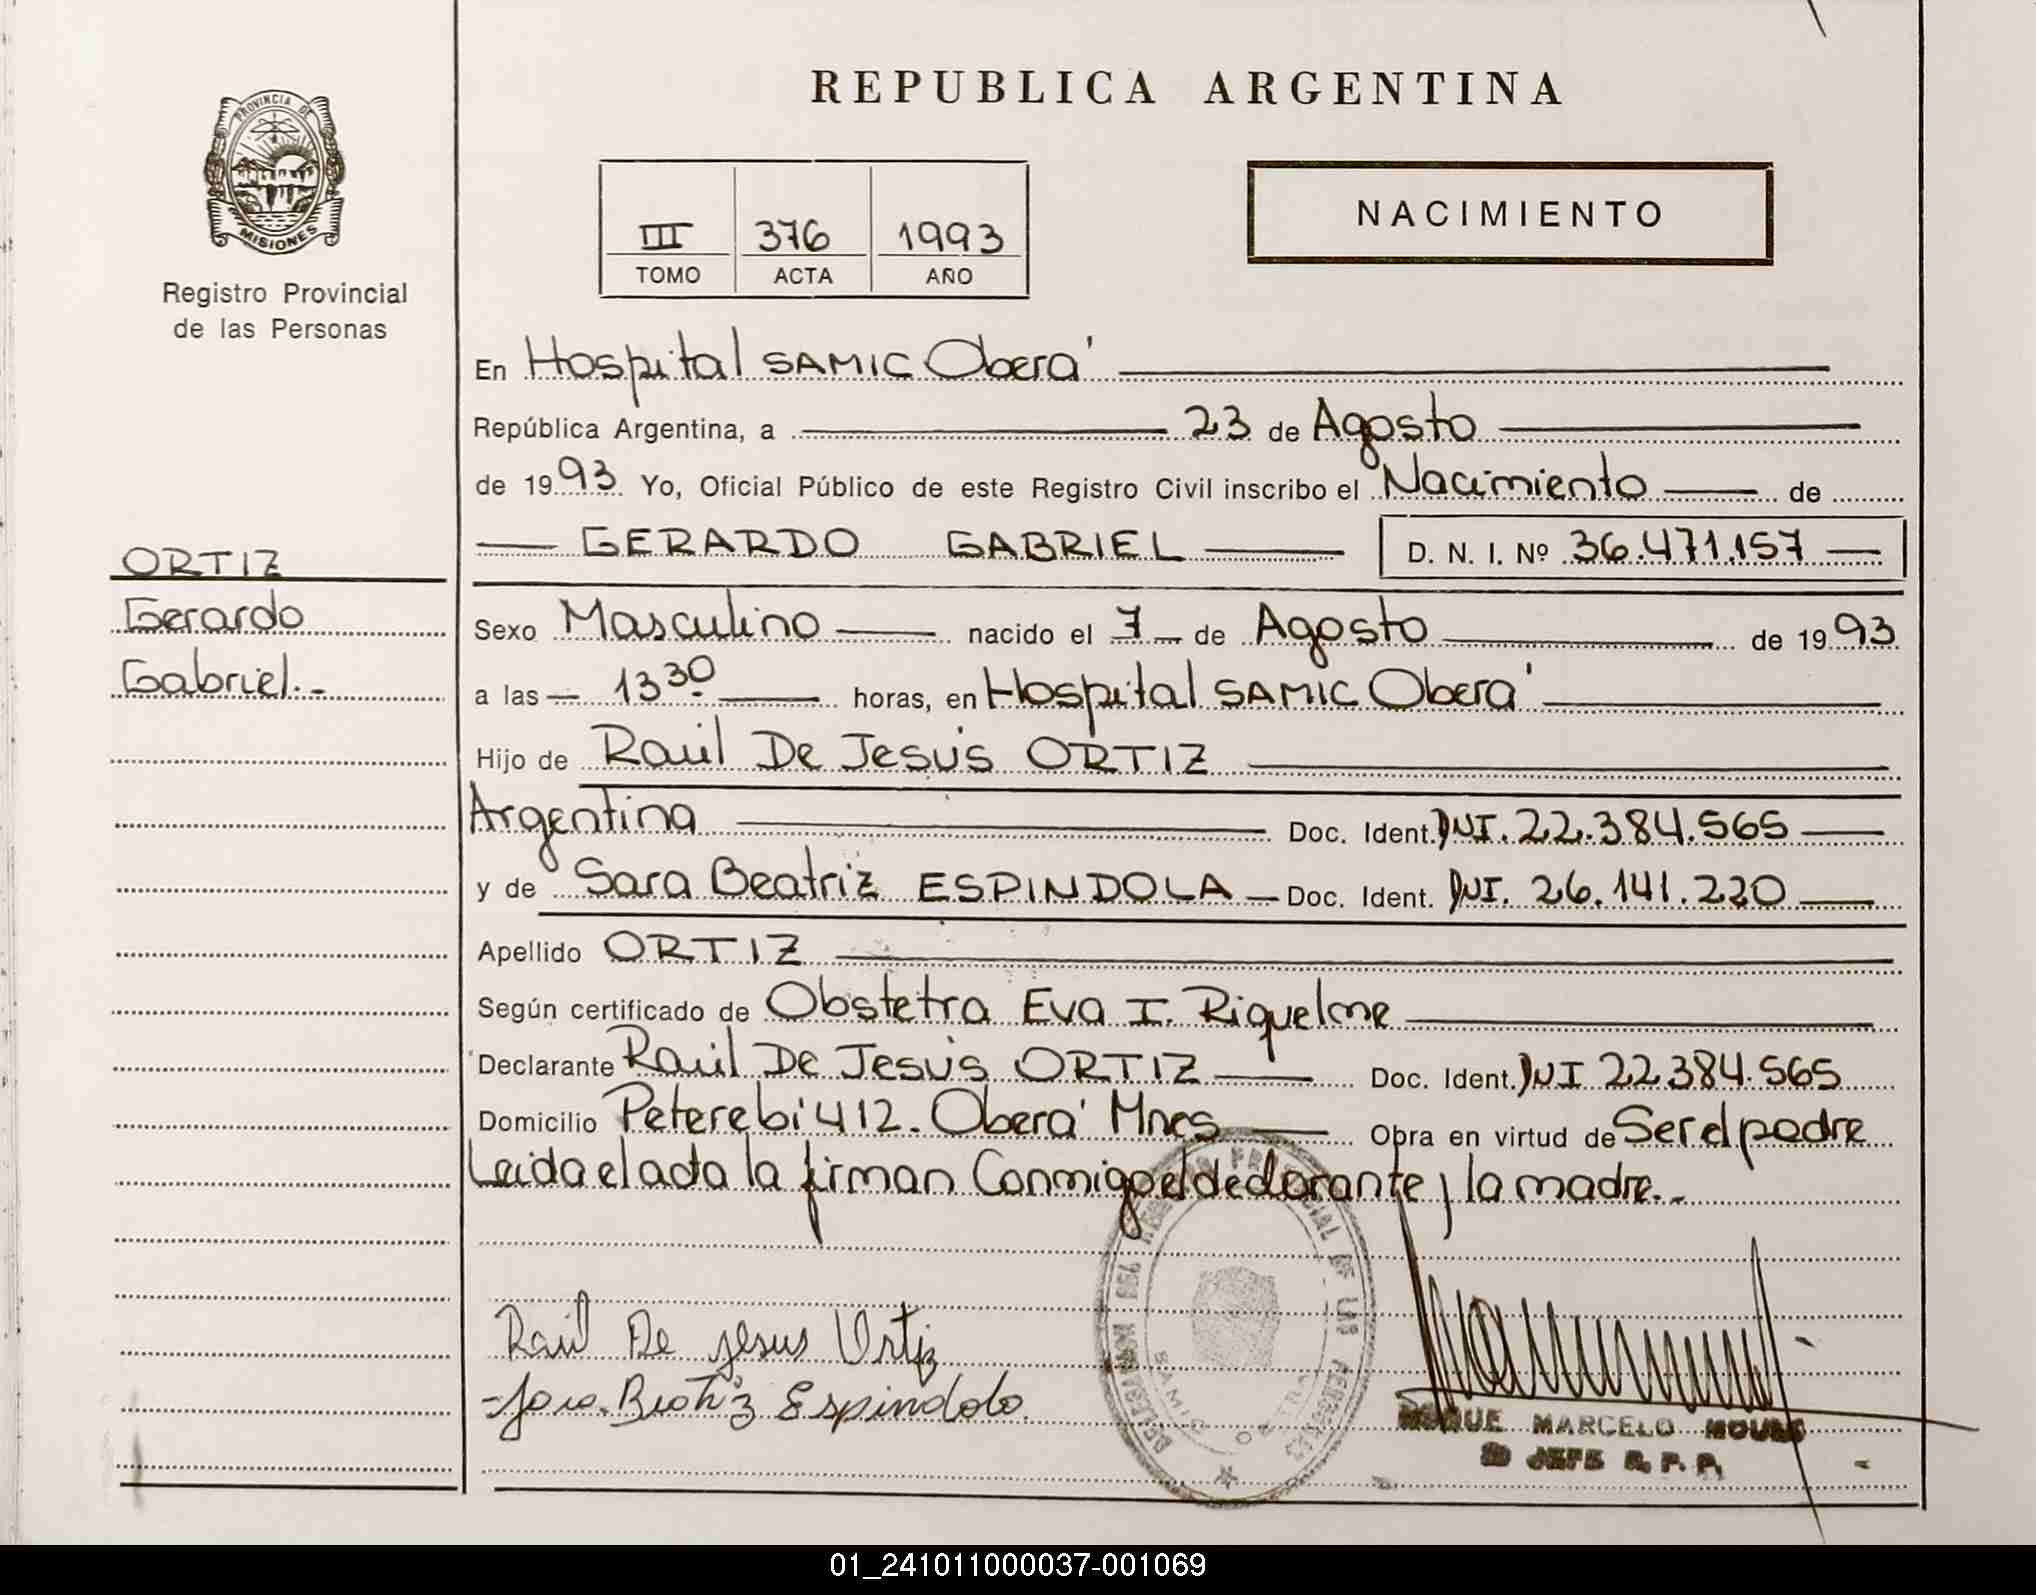 REPUBLICA ARGENTINA
PROVINCIA DE
MISIONES
Registro Provincial
de las Personas
III 376 1993
TOMO ACTA AÑO
NACIMIENTO
En Hospital SAMIC Oberá
República Argentina, a 23 de Agosto
de 1993 Yo, Oficial Público de este Registro Civil inscribo el Nacimiento de
GERARDO GABRIEL D. N. I. Nº 36.471.157
ORTIZ
Gerardo
Gabriel.-
Sexo Masculino nacido el 7 de Agosto de 1993
a las 13 30 horas, en Hospital SAMIC Oberá
Hijo de Raúl De Jesús ORTIZ
Argentina Doc. Ident. DNI. 22.384.565
y de Sara Beatriz ESPINDOLA Doc. Ident. DNI. 26.141.220
Apellido ORTIZ
Según certificado de Obstetra Eva I. Riquelme
Declarante Raúl De Jesús ORTIZ Doc. Ident. DNI 22.384.565
Domicilio Peterebí 412. Oberá Mnes Obra en virtud de Ser el padre
Leida el acta la firman Conmigo el declarante y la madre.-
Raúl De Jesus Ortiz
Sara Beatriz Espindola
SAMIC
ROQUE MARCELO
JEFE R. P. P.
01_241011000037-001069